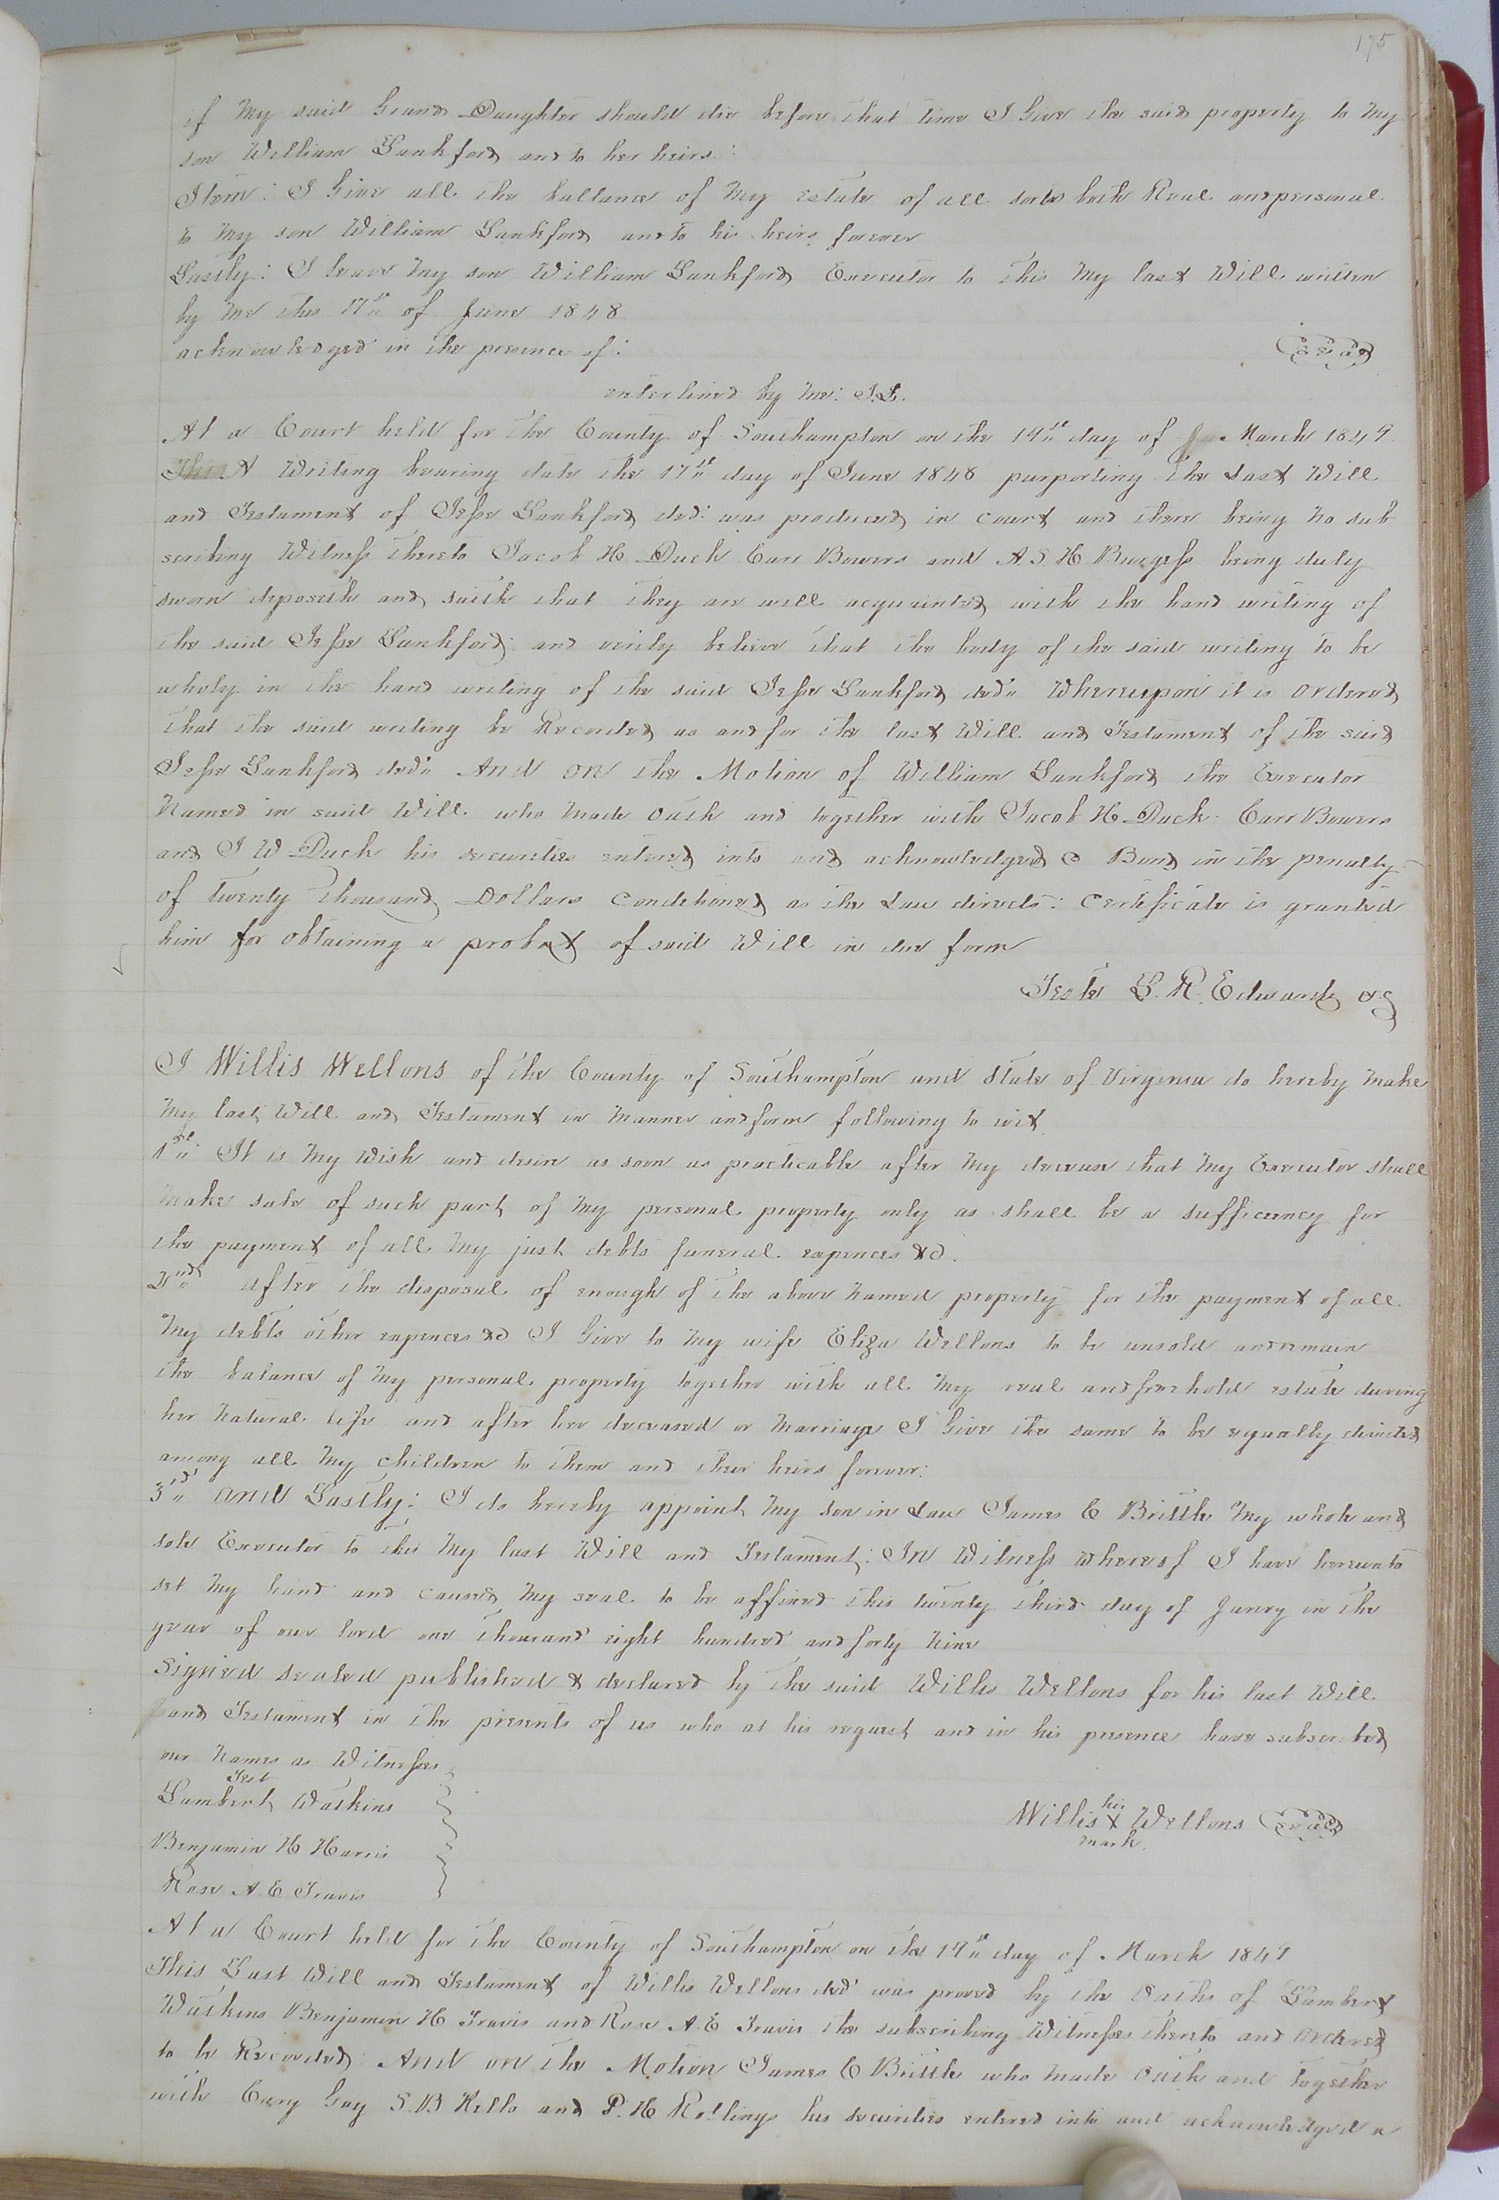 175
if My said Grand Daughter should die before that time I Give the said property to My
son William Lankford and to her heirs:
Item: I Give all the ballance of My Estate of all sorts both Real and personal
to My son William Lankford and to his heirs forever
Lastly: I leave My son William Lankford Executor to this My last Will written
by Me this 17th of June 1848
acknowledged in the presence of: Seal
enterlined by Me: J.L.
At a Court held for the County of Southampton on the 19th day of March 1849
This A Writing bearing date the 17th day of June 1848 purporting the Last Will
and Testament of Jesse Lankford decd: was produced in Court and there being No sub
scribing Witness thereto Jacob H Duck Carr Bowers and A.S.H Burgess being duly
sworn deposeth and saith that they are well acquainted with the hand writing of
the said Jesse Lankford: and verily believe that the body of the said writing to be
wholy in the hand writing of the said Jesse Lankford decd" Whereupon it is Ordered
that the said writing be Recorded as and for the last Will and Testament of the said
Jesse Lankford decd" And on the Motion of William Lankford the Executor
Named in said Will who Made Oath and together with Jacob H Duck Carr Bowers
and J W Duck his securities entered into and acknowledged a Bond in the penalty
of twenty thousand Dollars Conditioned as the Law directs: Certificate is granted
him for obtaining a probat of said Will in due form
Teste L. R. Edwards CC
I Willis Wellons of the County of Southampton and State of Virginia do hereby Make
My last Will and Testament in Manner and form following to wit
1st It is My Wish and desire as soon as practicable after My decease that My Executor shall
Make sale of such part of My personal property only as shall be a sufficiency for
the payment of all My just debts funeral expences &c.
2nd after the disposal of enough of the above Named property for the payment of all
My debts other expences &c I Give to My wife Eliza Wellons to be unsold and remain
the balance of My personal property together with all My real and freehold estate during
her Natural life and after her deceased or Marriage I Give the same to be equally divided
among all My Children to them and their heirs forever:
3d and Lastly: I do hereby appoint My Son in Law James E Brittle My whole and
sole Executor to this My last Will and Testament: In Witness Whereof I have hereunto
set My hand and caused My seal to be affixed this twenty third day of Janry in the
year of our lord one thousand eight hundred and forty Nine
Signed sealed published & declared by the said Willis Wellons for his last Will
and Testament in the presents of us who at his request and in his presence have subscribed
our Names as Witnesses
Test
Lambert Watkins
his
Willis X Wellons Seal
mark
Benjamin H Harris
Rose A. E Travis
At a Court held for the County of Southampton on the 19th day of March 1849
This Last Will and Testament of Willis Wellons decd was proved by the Oaths of Lambert
Watkins Benjamin H Travis and Rose A. E Travis the subscribing Witnesses thereto and Ordered
to be Recorded: And on the Motion James E Brittle who Made Oath and together
with Cary Gay S. B Kello and P. H Rollings his securities entered into and acknowledged a